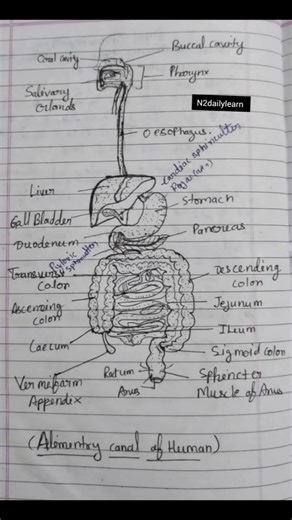 Oral cavity
Buccal cavity
Pharynx
Salivary
Glands
N2dailylearn
Oesophagus
Cardiac sphincter
Liver
Stomach
Gall Bladder
Pancreas
Duodenum
Pyloric
sphincter
Transverse
colon
Descending
colon
Ascending
colon
Jejunum
Ileum
Caecum
Sigmoid colon
Vermiform
Appendix
Rectum
Anus
Sphincter
Muscle of Anus
(Alimentry canal of Human)